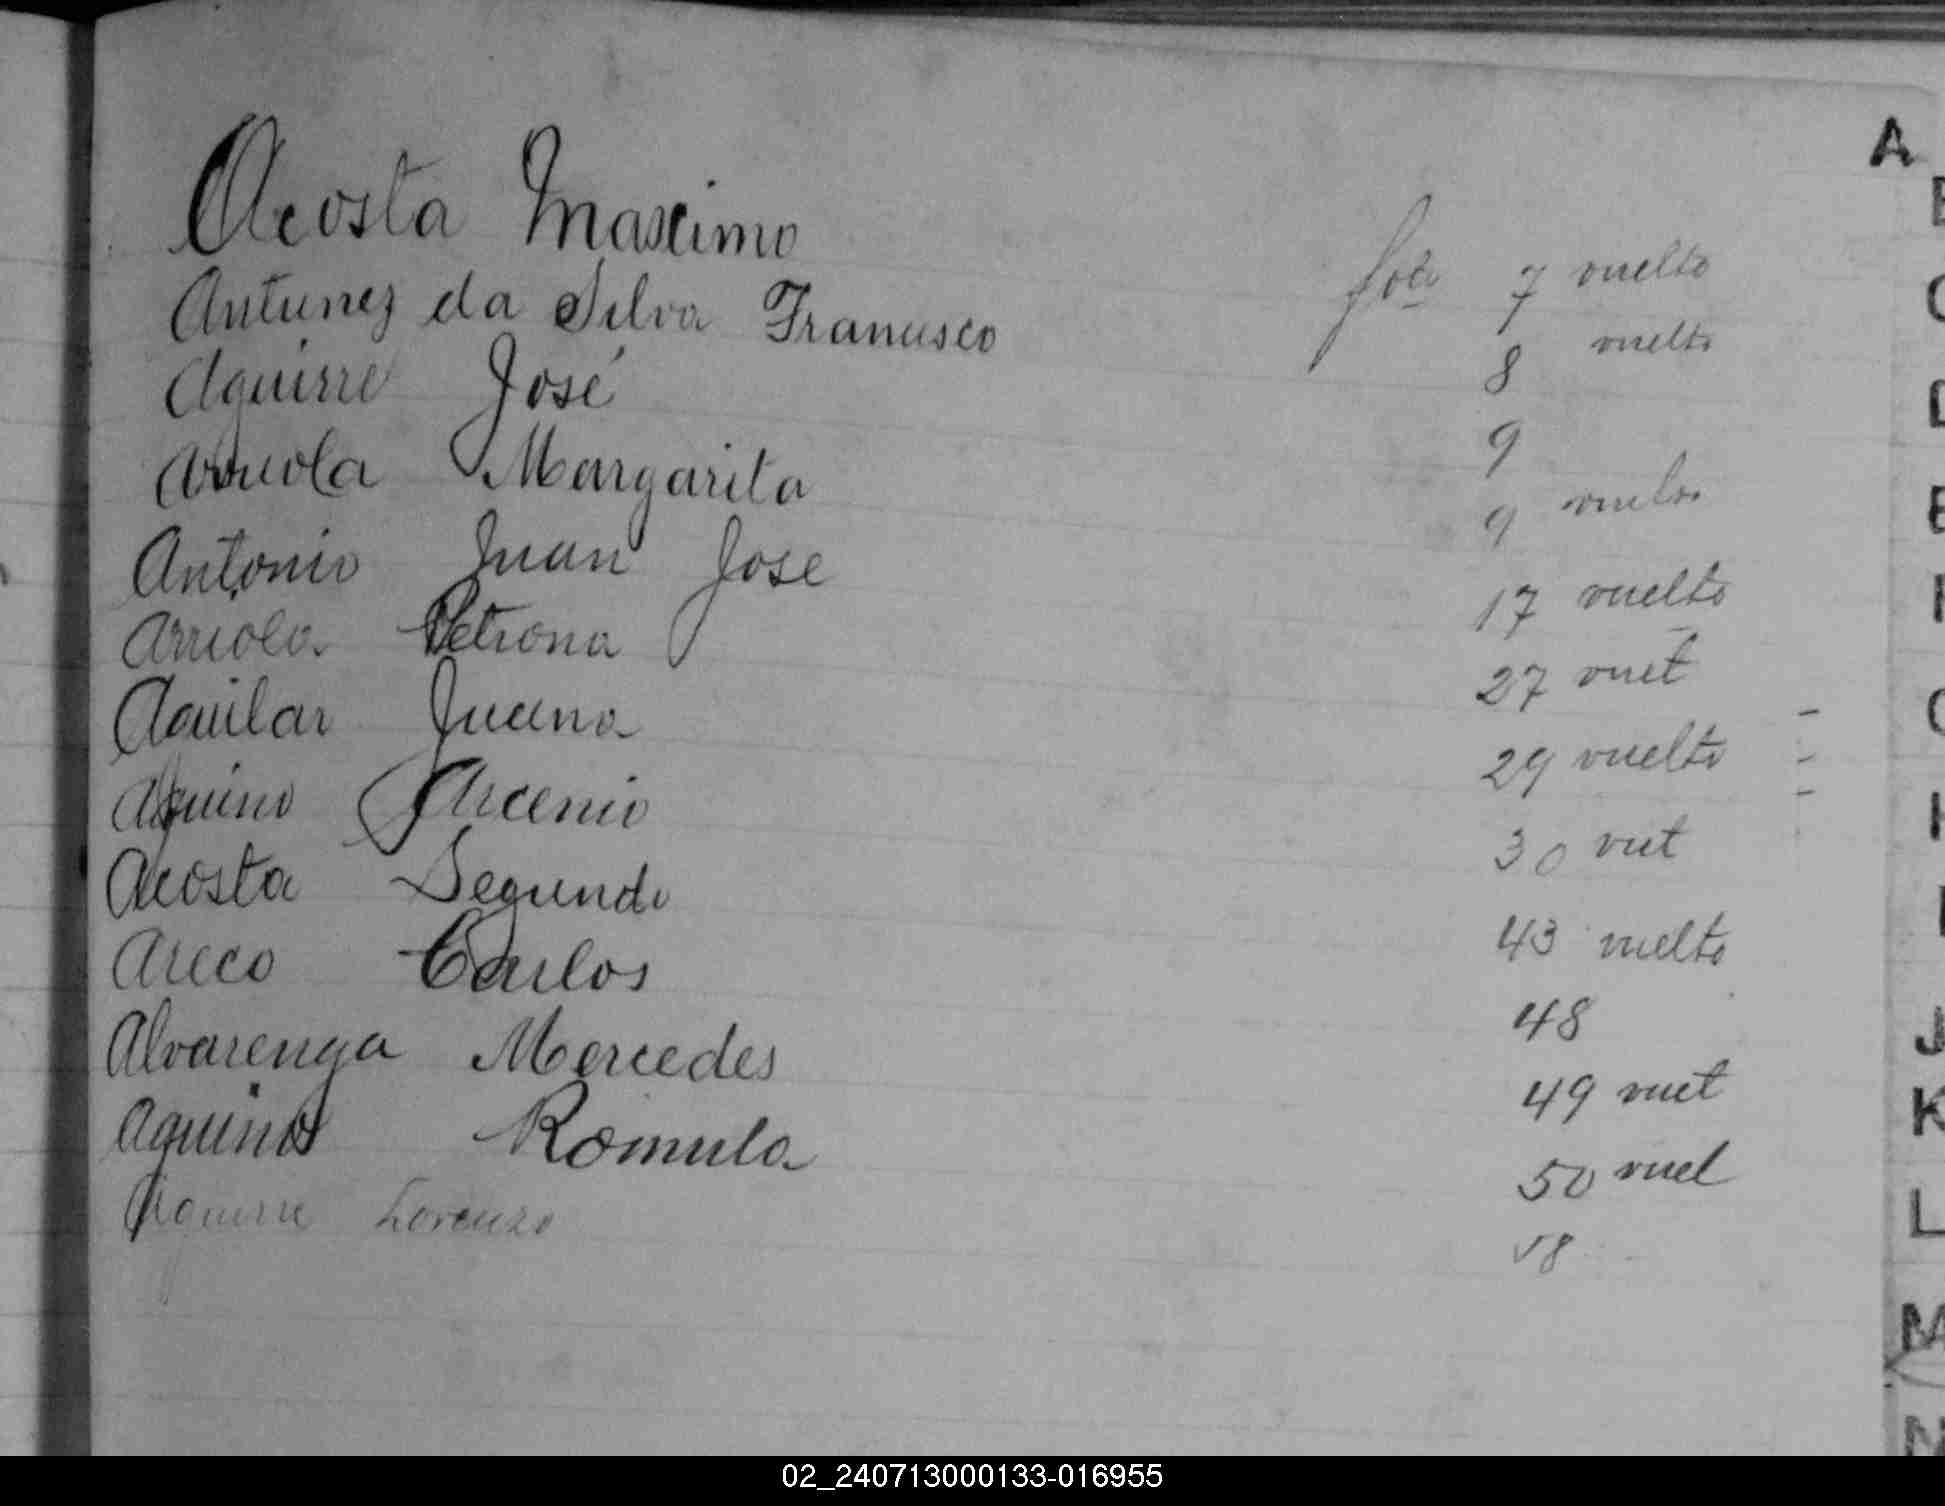 A
Acosta Maximo folio 7 vuelto
Antunez da Silva Francisco 8 vuelto
Aguirre José 9
Arriola Margarita 9 vuelto
Antonio Juan Jose 17 vuelto
Arriola Petrona 27 vuet
Aguilar Juana 29 vuelto
Aquino Arcenio 30 vuet
Acosta Segundo 43 vuelto
Areco Carlos 48
Alvarenga Mercedes 49 vuet
Aquino Romula 50 vuel
Aguirre Lorenzo 58
J
K
L
M
N
02_240713000133-016955